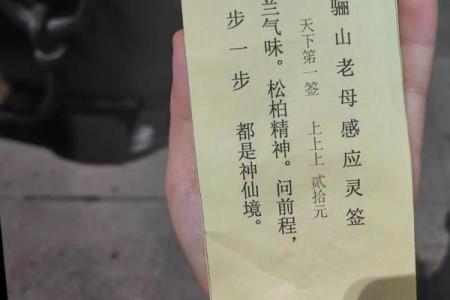 骊山老母感应灵签
天下第一签 上上上 贰拾元
兰气味。松柏精神。问前程，
步一步 都是神仙境。